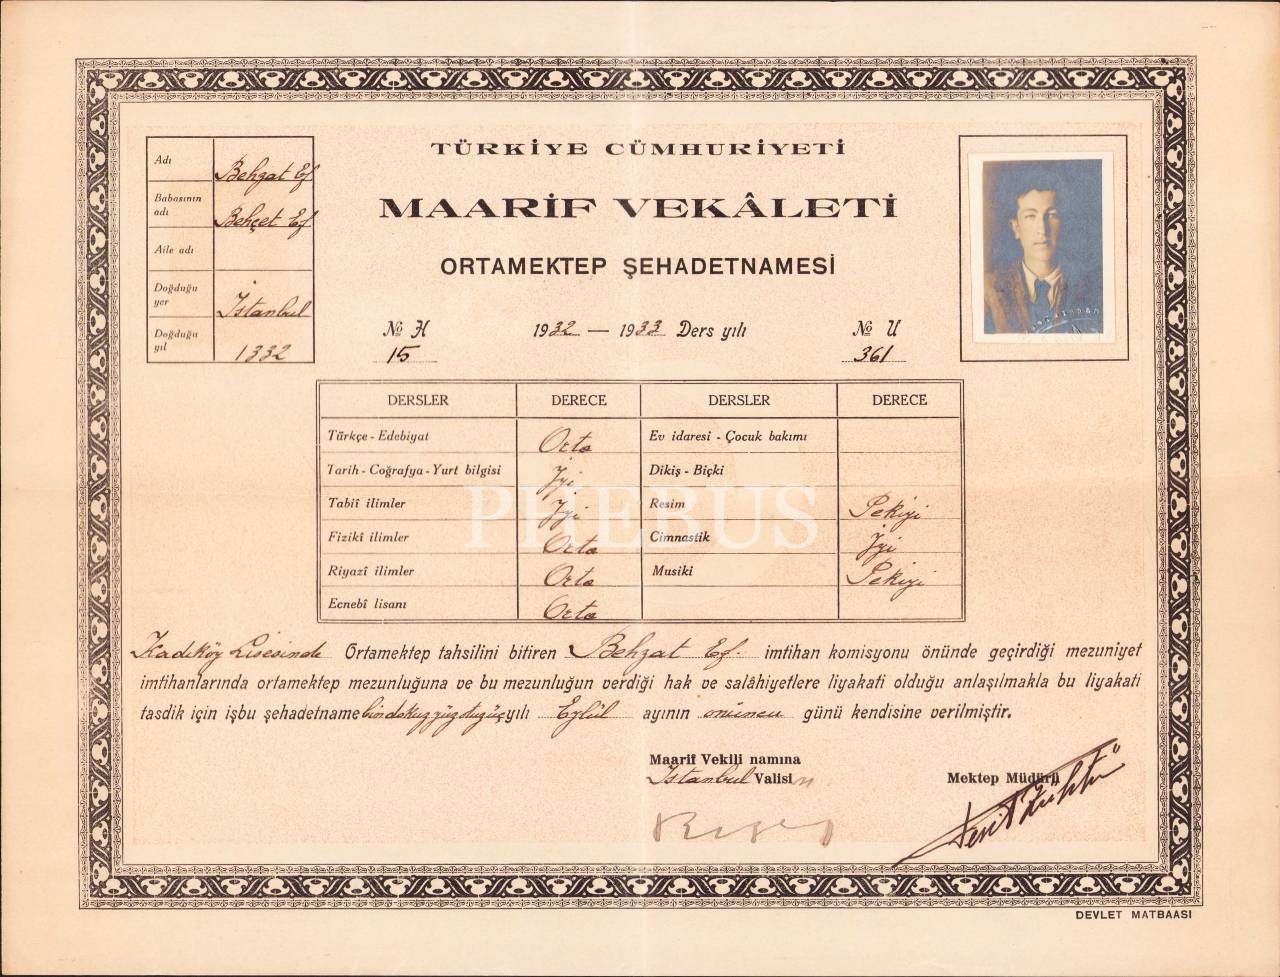 TÜRKİYE CÜMHURİYETİ
MAARİF VEKÂLETİ
ORTAMEKTEP ŞEHADETNAMESİ
Adı Behzat Ef.
Babasının adı Behçet Ef.
Aile adı
Doğduğu yer İstanbul
Doğduğu yıl 1332
№ H 1932 — 1933 Ders yılı № U
15 361
DERSLER DERECE DERSLER DERECE
Türkçe - Edebiyat Orta Ev idaresi - Çocuk bakımı
Tarih - Coğrafya - Yurt bilgisi İyi Dikiş - Biçki
Tabiî ilimler İyi Resim Pekiyi
Fizikî ilimler Orta Cimnastik İyi
Riyazî ilimler Orta Musiki Pekiyi
Ecnebî lisanı Orta
PHEBUS
Kadıköy Lisesinde Ortamektep tahsilini bitiren Behzat Ef. imtihan komisyonu önünde geçirdiği mezuniyet
imtihanlarında ortamektep mezunluğuna ve bu mezunluğun verdiği hak ve salâhiyetlere liyakati olduğu anlaşılmakla bu liyakati
tasdik için işbu şehadetname bindokuzyüzotuzüç yılı Eylül ayının onuncu günü kendisine verilmiştir.
Maarif Vekili namına
İstanbul Valisi
Mektep Müdürü
DEVLET MATBAASI